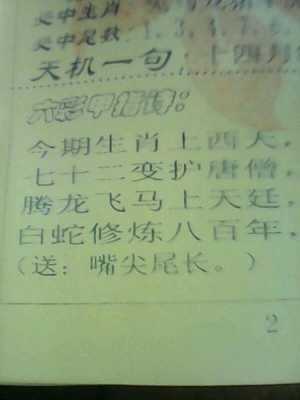 尾数:1.3.4.7.
天机一句:十四月
今期生肖上西天,
七十二变护唐僧,
腾龙飞马上天廷,
白蛇修炼八百年,
(送:嘴尖尾长。)
2